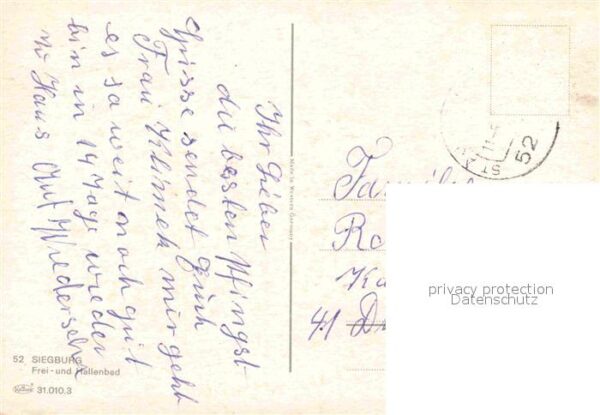 Ihr Lieber
die besten Pfingst-
Grüsse sendet Euch
Frau Klimek mir geht
es so weit noch gut
bin in 14 Tage wieder
zu Haus Auf Wiedersehn
Made in Western Germany
52
Familie
41
privacy protection
Datenschutz
52 SIEGBURG
Frei - und Hallenbad
31.010.3